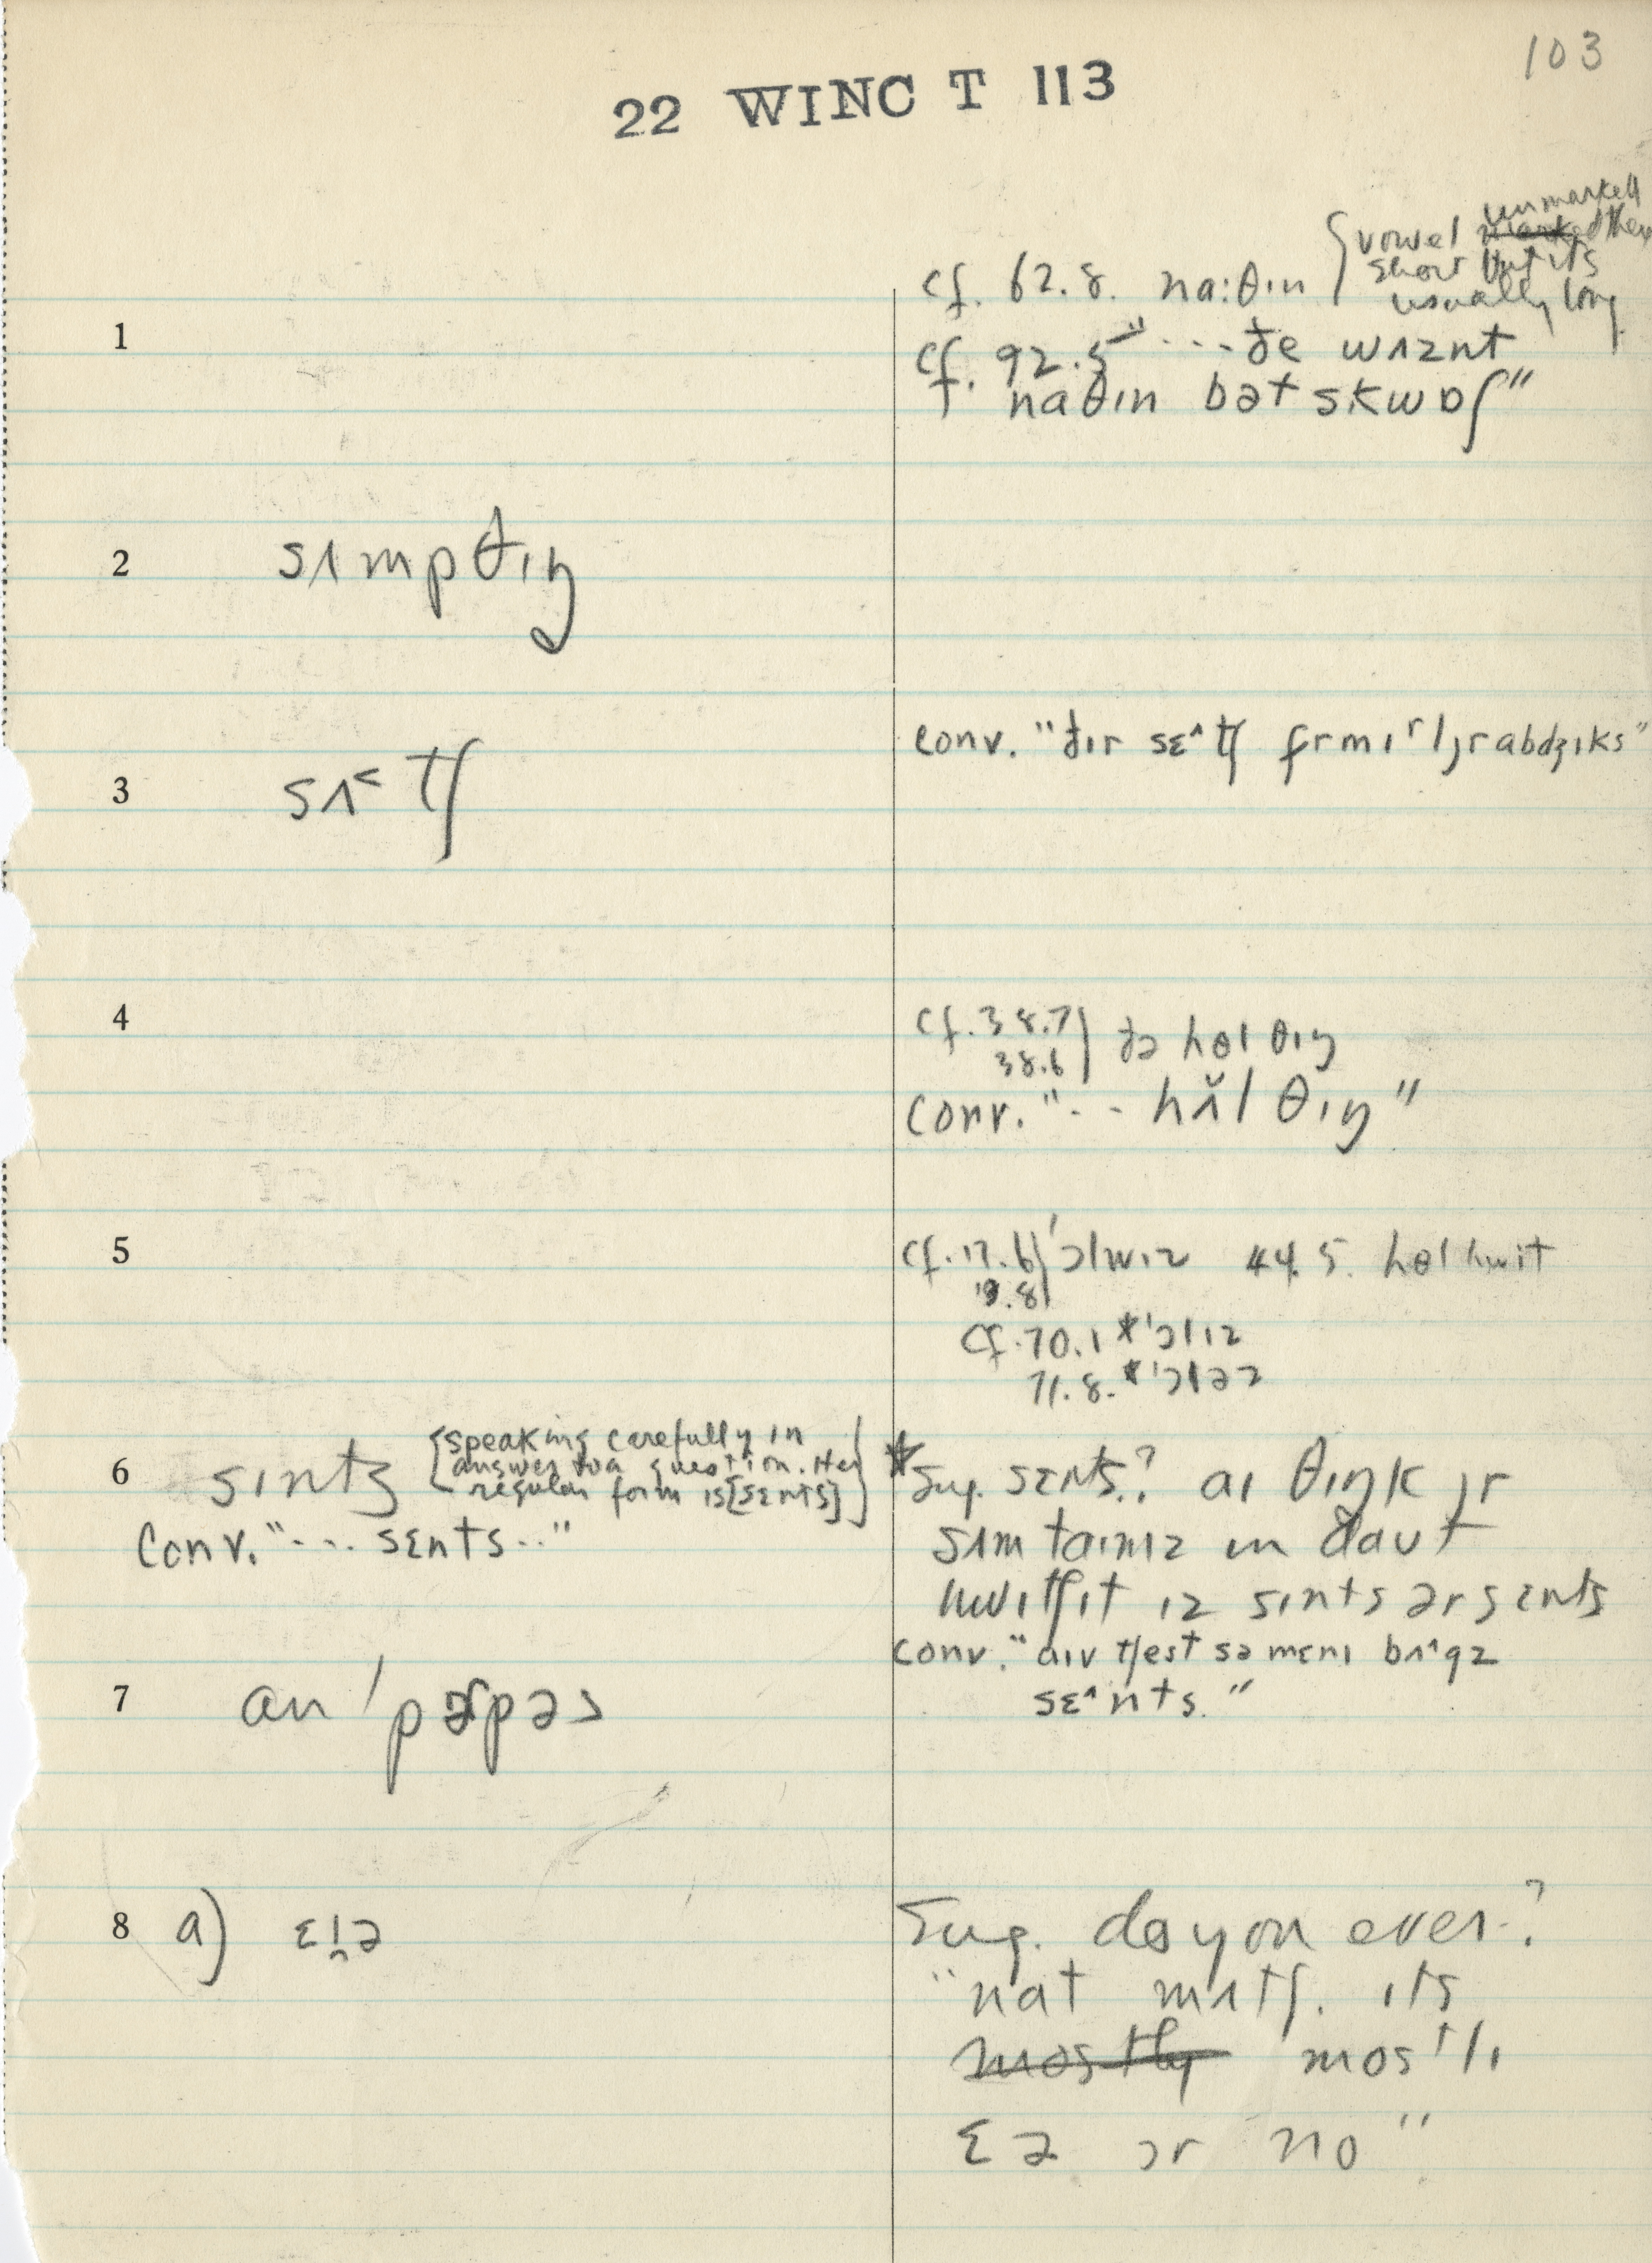 103
22 WINC T 113
unmarked
cf. 62.8. na:θɪn { vowel marked then
short but its
usually long
1
cf. 92.5 "...ðe wʌznt
naθɪn bət skwɒʃ"
2 sʌmpθɪŋ
3 sʌ˂tʃ
conv. "ðɪr sɛ^tʃ
4
cf. 38.7 } ðə hɵl θɪŋ
38.6
conv. "-- hʌ̆l θɪŋ"
5
cf. 17.6 } 'ɔlwɪz 44.5. hɵl hwit
19.8
cf. 70.1 *'ɔlɪz
71.8. *'ɔləz
6 sɪnts { speaking carefully in
answer to a question. Her
regular form is [sɛnts] }
Conv. "... sɛnts.."
*Sug. sɛnts.? aɪ θɪŋk ɪr
sʌm taɪmz ɪn daʊt
hwɪtʃ ɪt ɪz sɪnts ər sɛnts
conv. "aɪv tʃest sə mɛnɪ bʌ^gz
sɛ^nts."
7 an 'pɚpəs
8 a) ɛ
Sug. do you ever?
"nat mʌtʃ. ɪts
mostly mos'lɪ
ɛə ɔr no"